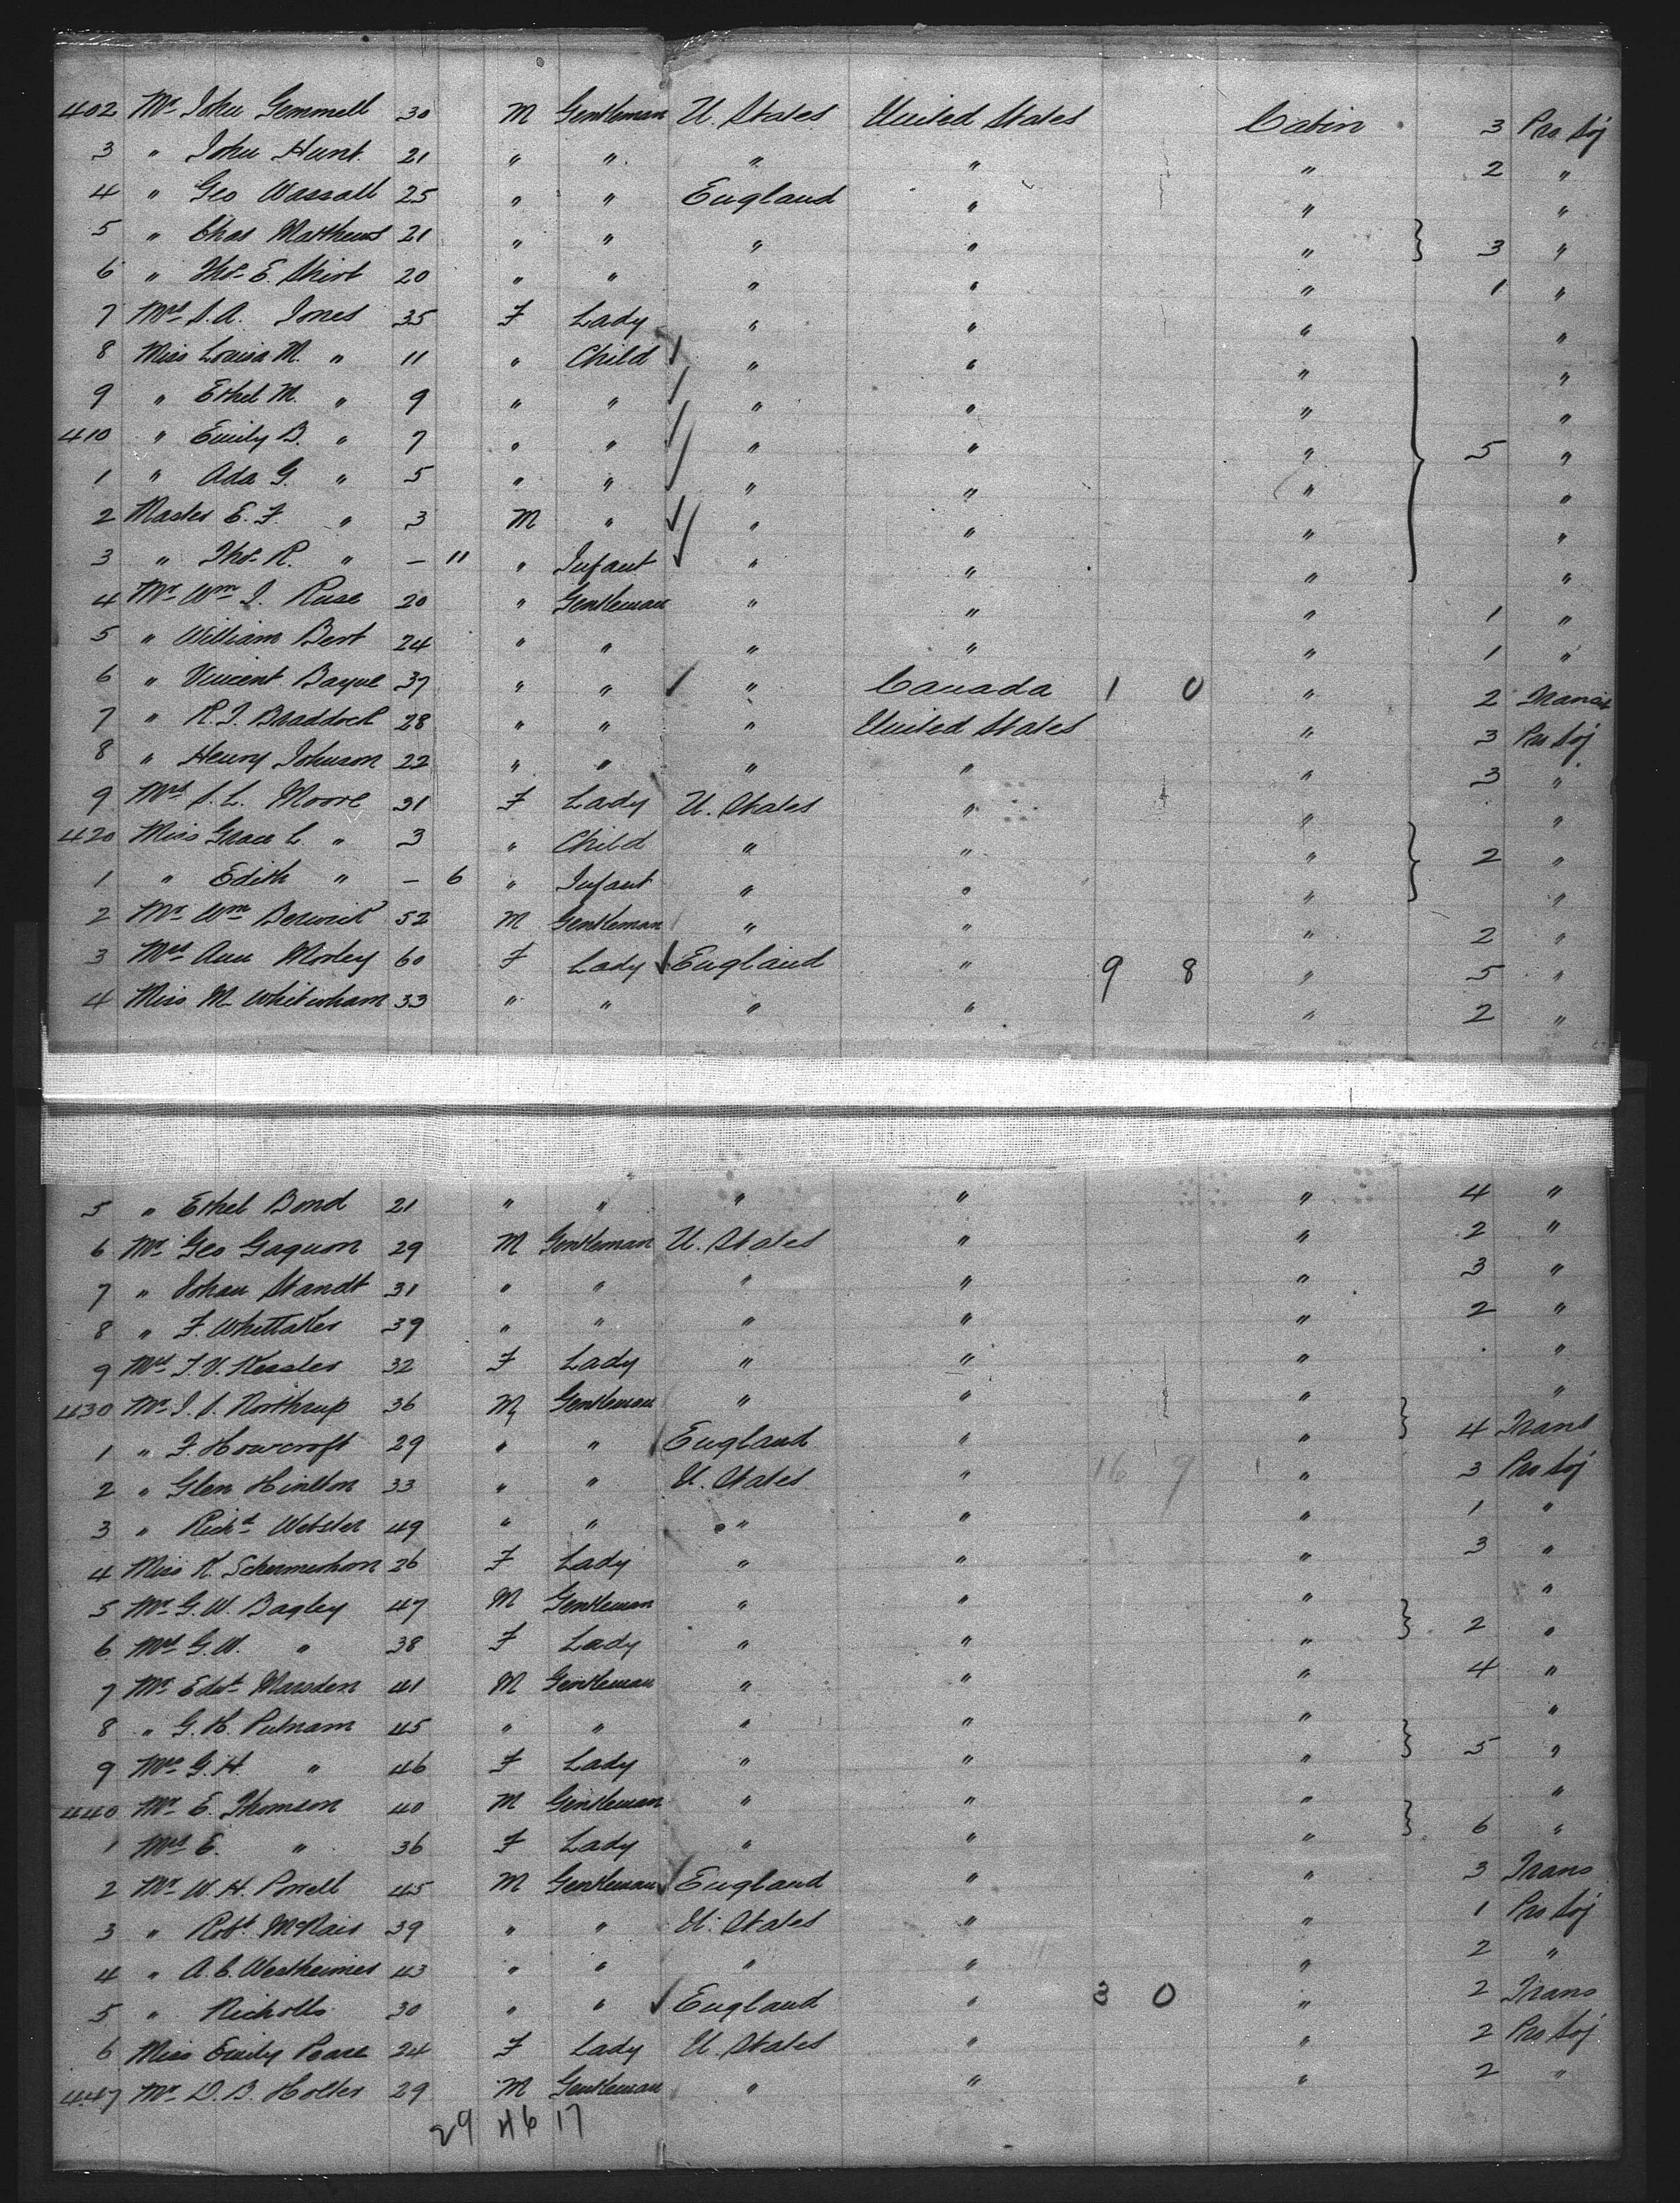 402 Mr John Gemmell 30 M Gentleman U. States United States Cabin 3 Pro Soj
3 " John Hunt 21 " " " " " 2 "
4 " Geo Wassall 25 " " England " " "
5 " Chas Matthews 21 " " " " " } 3 "
6 " Thos E. Skirt 20 " " " " " 1 "
7 Mrs S.A. Jones 35 F Lady " " " "
8 Miss Louisa M. " 11 " Child " " " "
9 " Ethel M. " 9 " " " " " "
410 " Emily B. " 7 " " " " " } 5 "
1 " Ada G. " 5 " " " " " "
2 Master E. F. " 3 M " " " " "
3 " Thos R. " – 11 " Infant " " " "
4 Mr Wm J. Ruse 20 " Gentleman " " " 1 "
5 " William Bert 24 " " " " " 1 "
6 " Vincent Bayne 37 " " " Canada 1 0 " 2 Transit
7 " R.J. Braddock 28 " " " United States " 3 Pro Soj
8 " Henry Johnson 22 " " " " " 3 "
9 Mrs S.L. Moore 31 F Lady U. States " " "
420 Miss Grace L. " 3 " Child " " " } 2 "
1 " Edith " – 6 " Infant " " " "
2 Mr Wm Berwick 52 M Gentleman " " " 2 "
3 Mrs Ann Morley 60 F Lady England " 9 8 " 5 "
4 Miss M Whitesham 33 " " " " " 2 "
5 " Ethel Bond 21 " " " " " 4 "
6 Mr Geo Gagnon 29 M Gentleman U. States " " 2 "
7 " Johan Standt 31 " " " " " 3 "
8 " F. Whittaker 39 " " " " " 2 "
9 Mrs F. V. Kessler 32 F Lady " " " "
430 Mr J. S. Northrup 36 M Gentleman " " " "
1 " F. Howcroft 29 " " England " " } 4 Trans
2 " Glen Hinlton 33 " " U. States " 16 9 " 3 Pro Soj
3 " Richd Webster 49 " " " " " 1 "
4 Miss K. Schermerhorn 26 F Lady " " " 3 "
5 Mr G. W. Bagley 47 M Gentleman " " " "
6 Mrs G. W. " 38 F Lady " " " } 2 "
7 Mr Edwd Marsden 41 M Gentleman " " " 4 "
8 " G. H. Putnam 45 " " " " " "
9 Mrs G. H. " 46 F Lady " " " } 5 "
440 Mr E. Thomson 40 M Gentleman " " " "
1 Mrs E. " 36 F Lady " " " } 6 "
2 Mr W. H. Powell 45 M Gentleman England " " 3 Trans
3 " Robt McNair 39 " " U. States " " 1 Pro Soj
4 " A. C. Westheimer 43 " " " " " 2 "
5 " Nicholls 30 " " England " 3 0 " 2 Trans
6 Miss Emily Pease 24 F Lady U. States " " 2 Pro Soj
447 Mr D. B. Holter 29 M Gentleman " " " 2 "
29 46 17